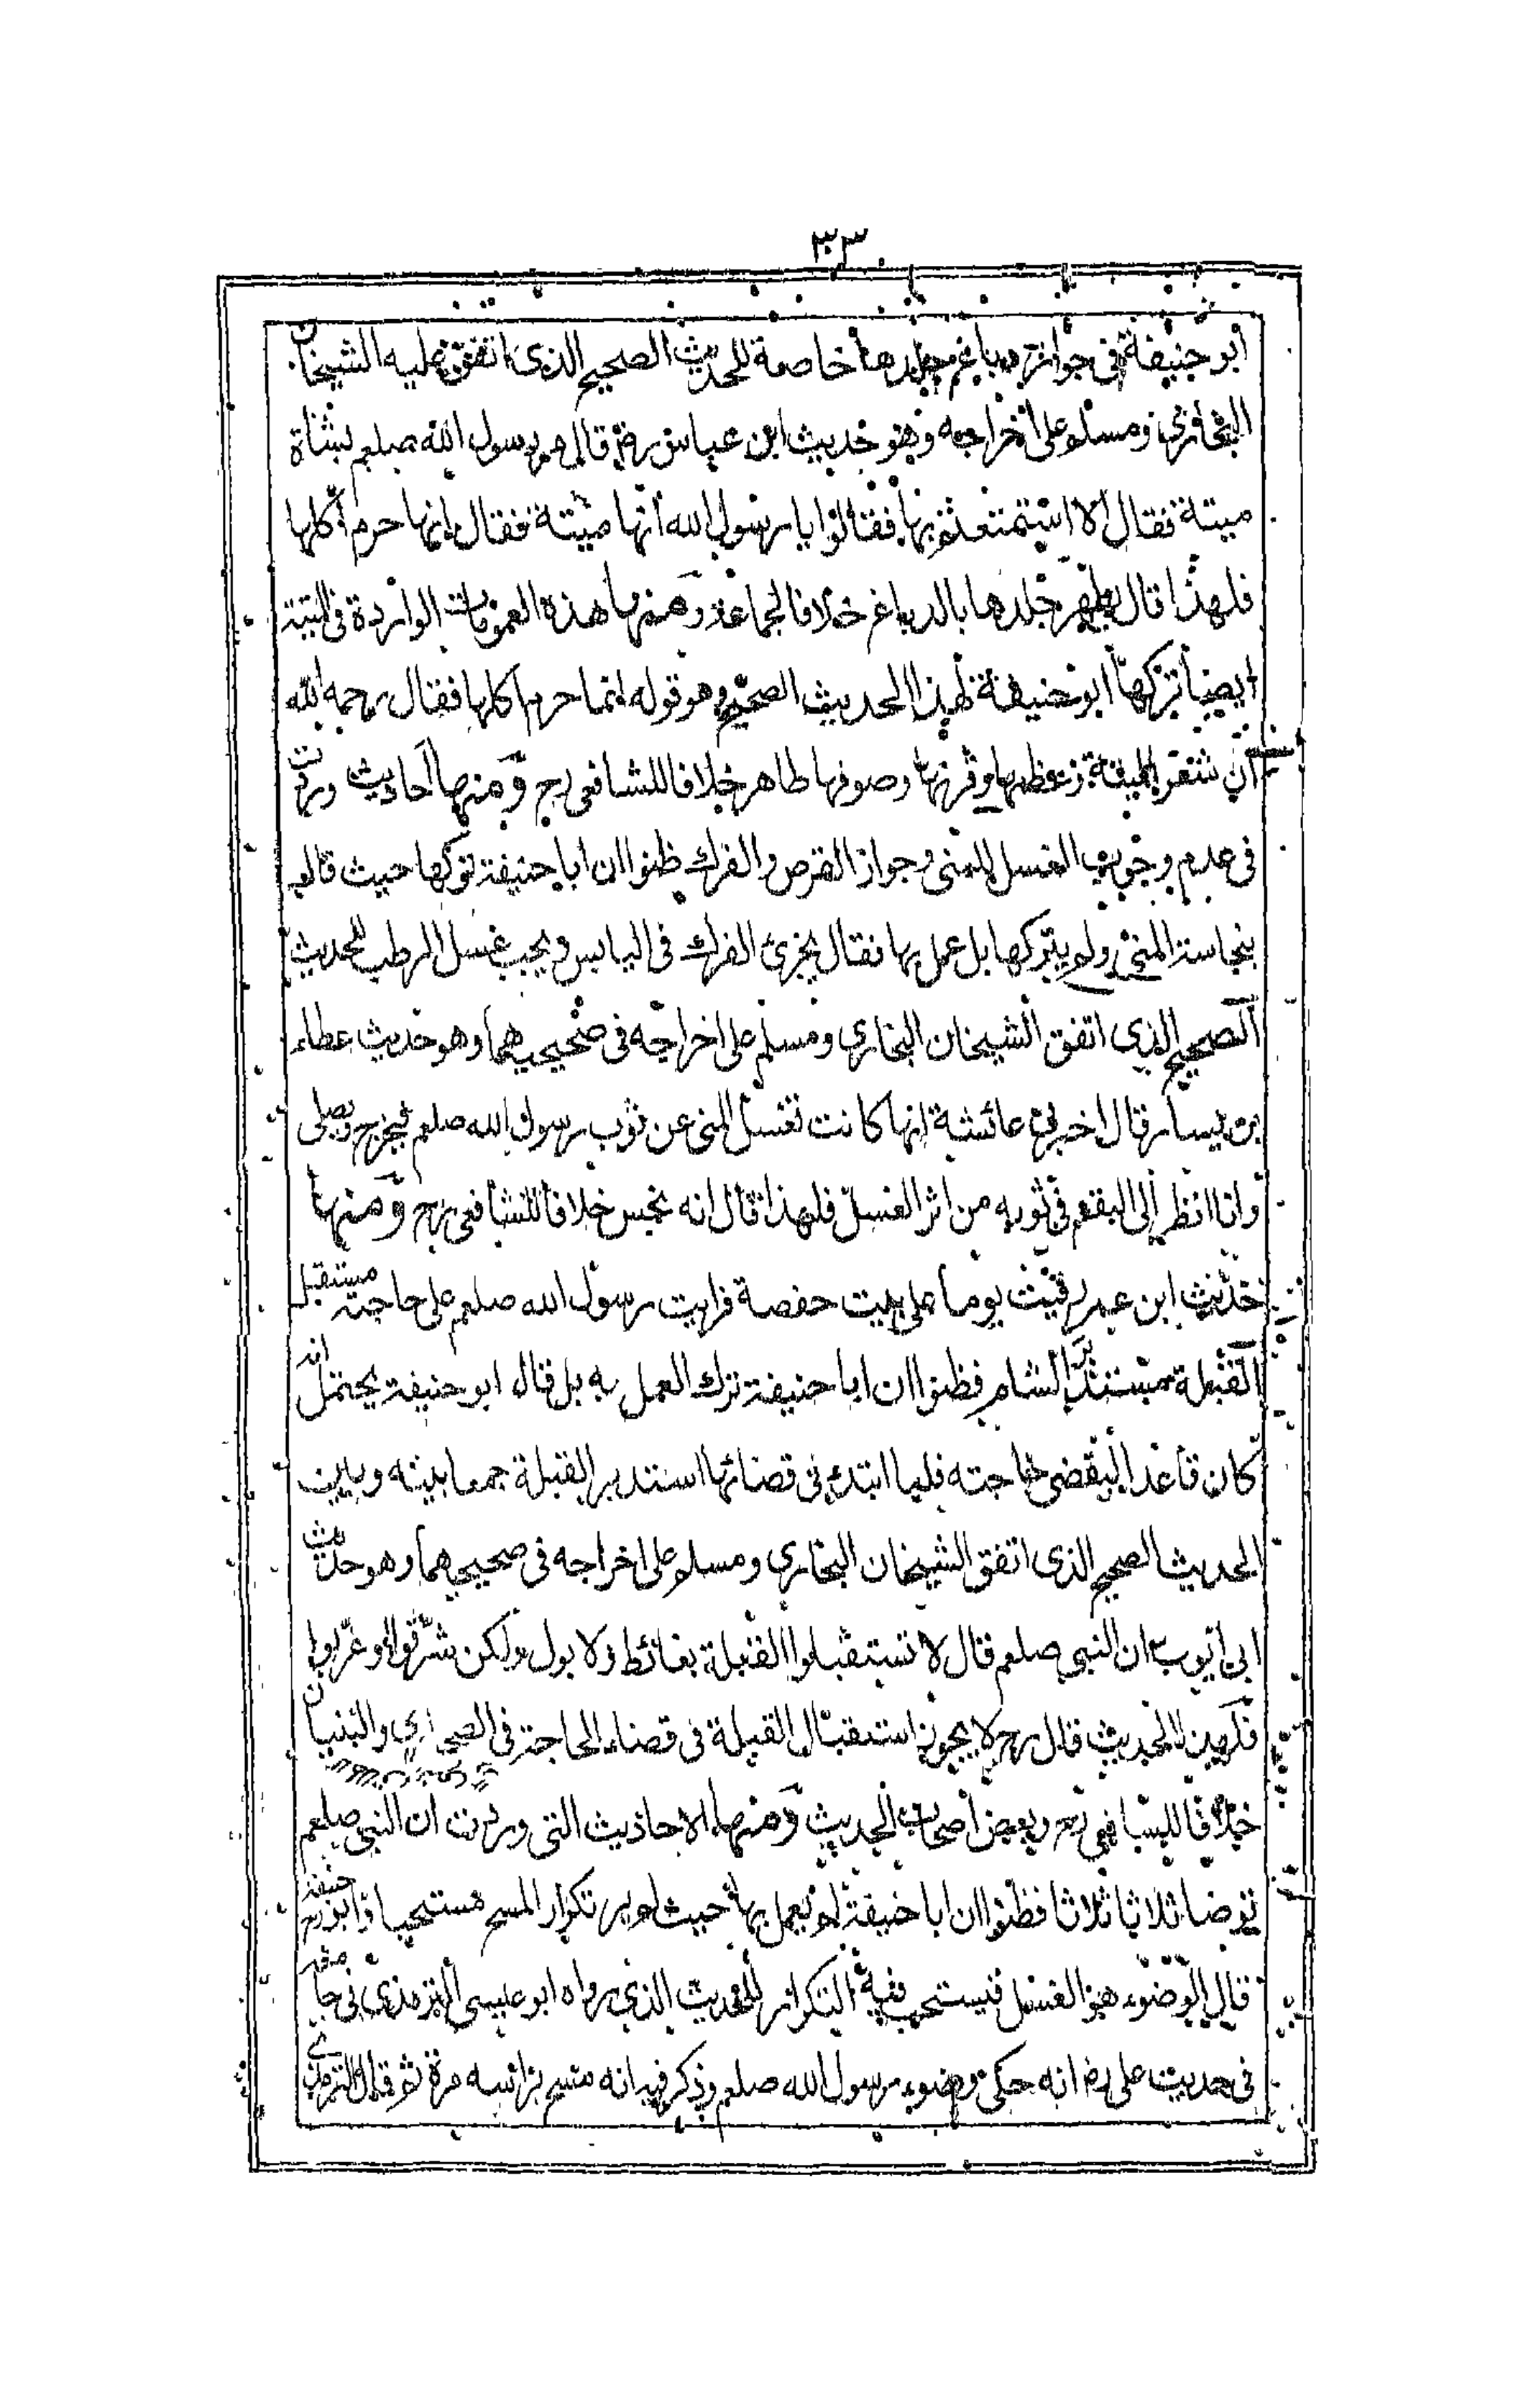 ٣٣
ابو حنيفة في جواز دباغ جلدها خاصة للحديث الصحيح الذي اتفق عليه الشيخان
البخاري ومسلم على اخراجه وهو حديث ابن عباس رضـ قال مر رسول الله صلعم بشاة
ميتة فقال الا استمتعتم بها فقالوا يا رسول الله انها ميتة فقال انما حرم اكلها
فلهذا قال يطهر جلدها بالدباغ خلافا لجماعة ومنها هذه العمومات الواردة في الميتة
ايضا تركها ابو حنيفة لهذا الحديث الصحيح وهو قوله انما حرم اكلها فقال رحمه الله
ان شعر الميتة وعظمها وقرنها وصوفها طاهر خلافا للشافعي رح ومنها احاديث وردت
في عدم وجوب الغسل للمني وجواز القرص والفرك ظنوا ان ابا حنيفة تركها حيث قال
بنجاسة المني ولم يتركها بل عمل بها فقال يجزئ الفرك في اليابس ويجب غسل الرطب للحديث
الصحيح الذي اتفق الشيخان البخاري ومسلم على اخراجه في صحيحيهما وهو حديث عطاء
بن يسار قال اخبرتني عائشة انها كانت تغسل المني عن ثوب رسول الله صلعم فيخرج ويصلي
وانا انظر الى البقع في ثوبه من اثر الغسل فلهذا قال انه نجس خلافا للشافعي رح ومنها
حديث ابن عمر رقيت يوما على بيت حفصة فرايت رسول الله صلعم على حاجته مستقبل
القبلة مستدبر الشام فظنوا ان ابا حنيفة ترك العمل به بل قال ابو حنيفة يحتمل انه
كان قاعدا ليقضي حاجته فلما ابتدء في قضائها استدبر القبلة جمعا بينه وبين
الحديث الصحيح الذي اتفق الشيخان البخاري ومسلم على اخراجه في صحيحيهما وهو حديث
ابي ايوب ان النبي صلعم قال لا تستقبلوا القبلة بغائط ولا بول ولكن شرقوا او غربوا
فلهذا الحديث قال رح لا يجوز استقبال القبلة في قضاء الحاجة في الصحاري والبنيان
خلافا للشافعي رح وبعض اصحاب الحديث ومنها الاحاديث التي وردت ان النبي صلعم
توضا ثلاثا ثلاثا فظنوا ان ابا حنيفة لم يعمل بها حيث لم ير تكرار المسح مستحبا وابو حنيفة رح
قال الوضوء هو الغسل فيستحب فيه التكرار للحديث الذي رواه ابو عيسى الترمذي في جامعه
في حديث علي رضـ انه حكى وضوء رسول الله صلعم وذكر فيه انه مسح براسه مرة ثم قال الترمذي